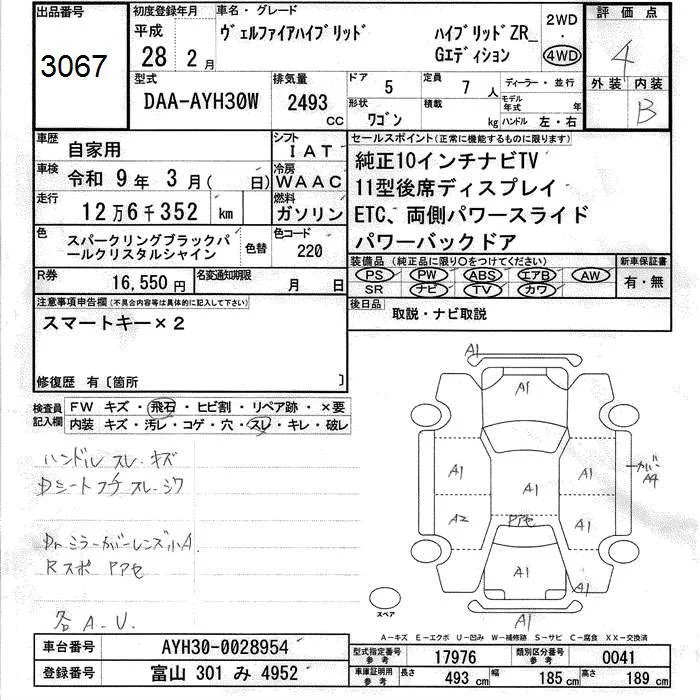 出品番号
3067
初度登録年月
平成
28 2 月
車名・グレード
ヴェルファイアハイブリッド ハイブリッドZR_
Gエディション
2WD
4WD
評価点
4
外装 内装
B
型式
DAA-AYH30W
排気量
2493
cc
ドア
5
定員
7 人
ディーラー・並行
形状
ワゴン
積載
kg
モデル年式 年
ハンドル 左・右
車歴
自家用
シフト
IAT
車検
令和 9 年 3 月( 日)
冷房
WAAC
走行
12 万 6 千 352 km
燃料
ガソリン
色
スパークリングブラックパ
ールクリスタルシャイン
色替
色コード
220
R券
16,550 円
名変通知期限
月 日
セールスポイント(正常に機能するものに限ります)
純正10インチナビTV
11型後席ディスプレイ
ETC、両側パワースライド
パワーバックドア
装備品 (純正品に限り〇をつけてください)
PS PW ABS エアB AW
SR ナビ TV カワ
新車保証書
有・無
後日品
取説・ナビ取説
注意事項申告欄(不具合内容等は具体的に記入して下さい)
スマートキー×2
修復歴 有〔箇所 〕
検査員
記入欄
FW キズ・飛石・ヒビ割・リペア跡・×要
内装 キズ・汚レ・コゲ・穴・スレ・キレ・破レ
ハンドル スレ・キズ
Dシートフチ スレ・シワ
Drミラーカバーレンズ小A.
Rスポ Pアセ
各 A.U.
A1
A1
A1
A1
A1
カバー
A4
A2
Pアセ
A1
A1
A1
スペア
A-キズ E-エクボ U-凹み W-補修跡 S-サビ C-腐食 XX-交換済
車台番号
AYH30-0028954
登録番号
富山 301 み 4952
型式指定番号
参考
17976
類別区分番号
参考
0041
車庫証明用
参考
長さ
493 cm
幅
185 cm
高さ
189 cm